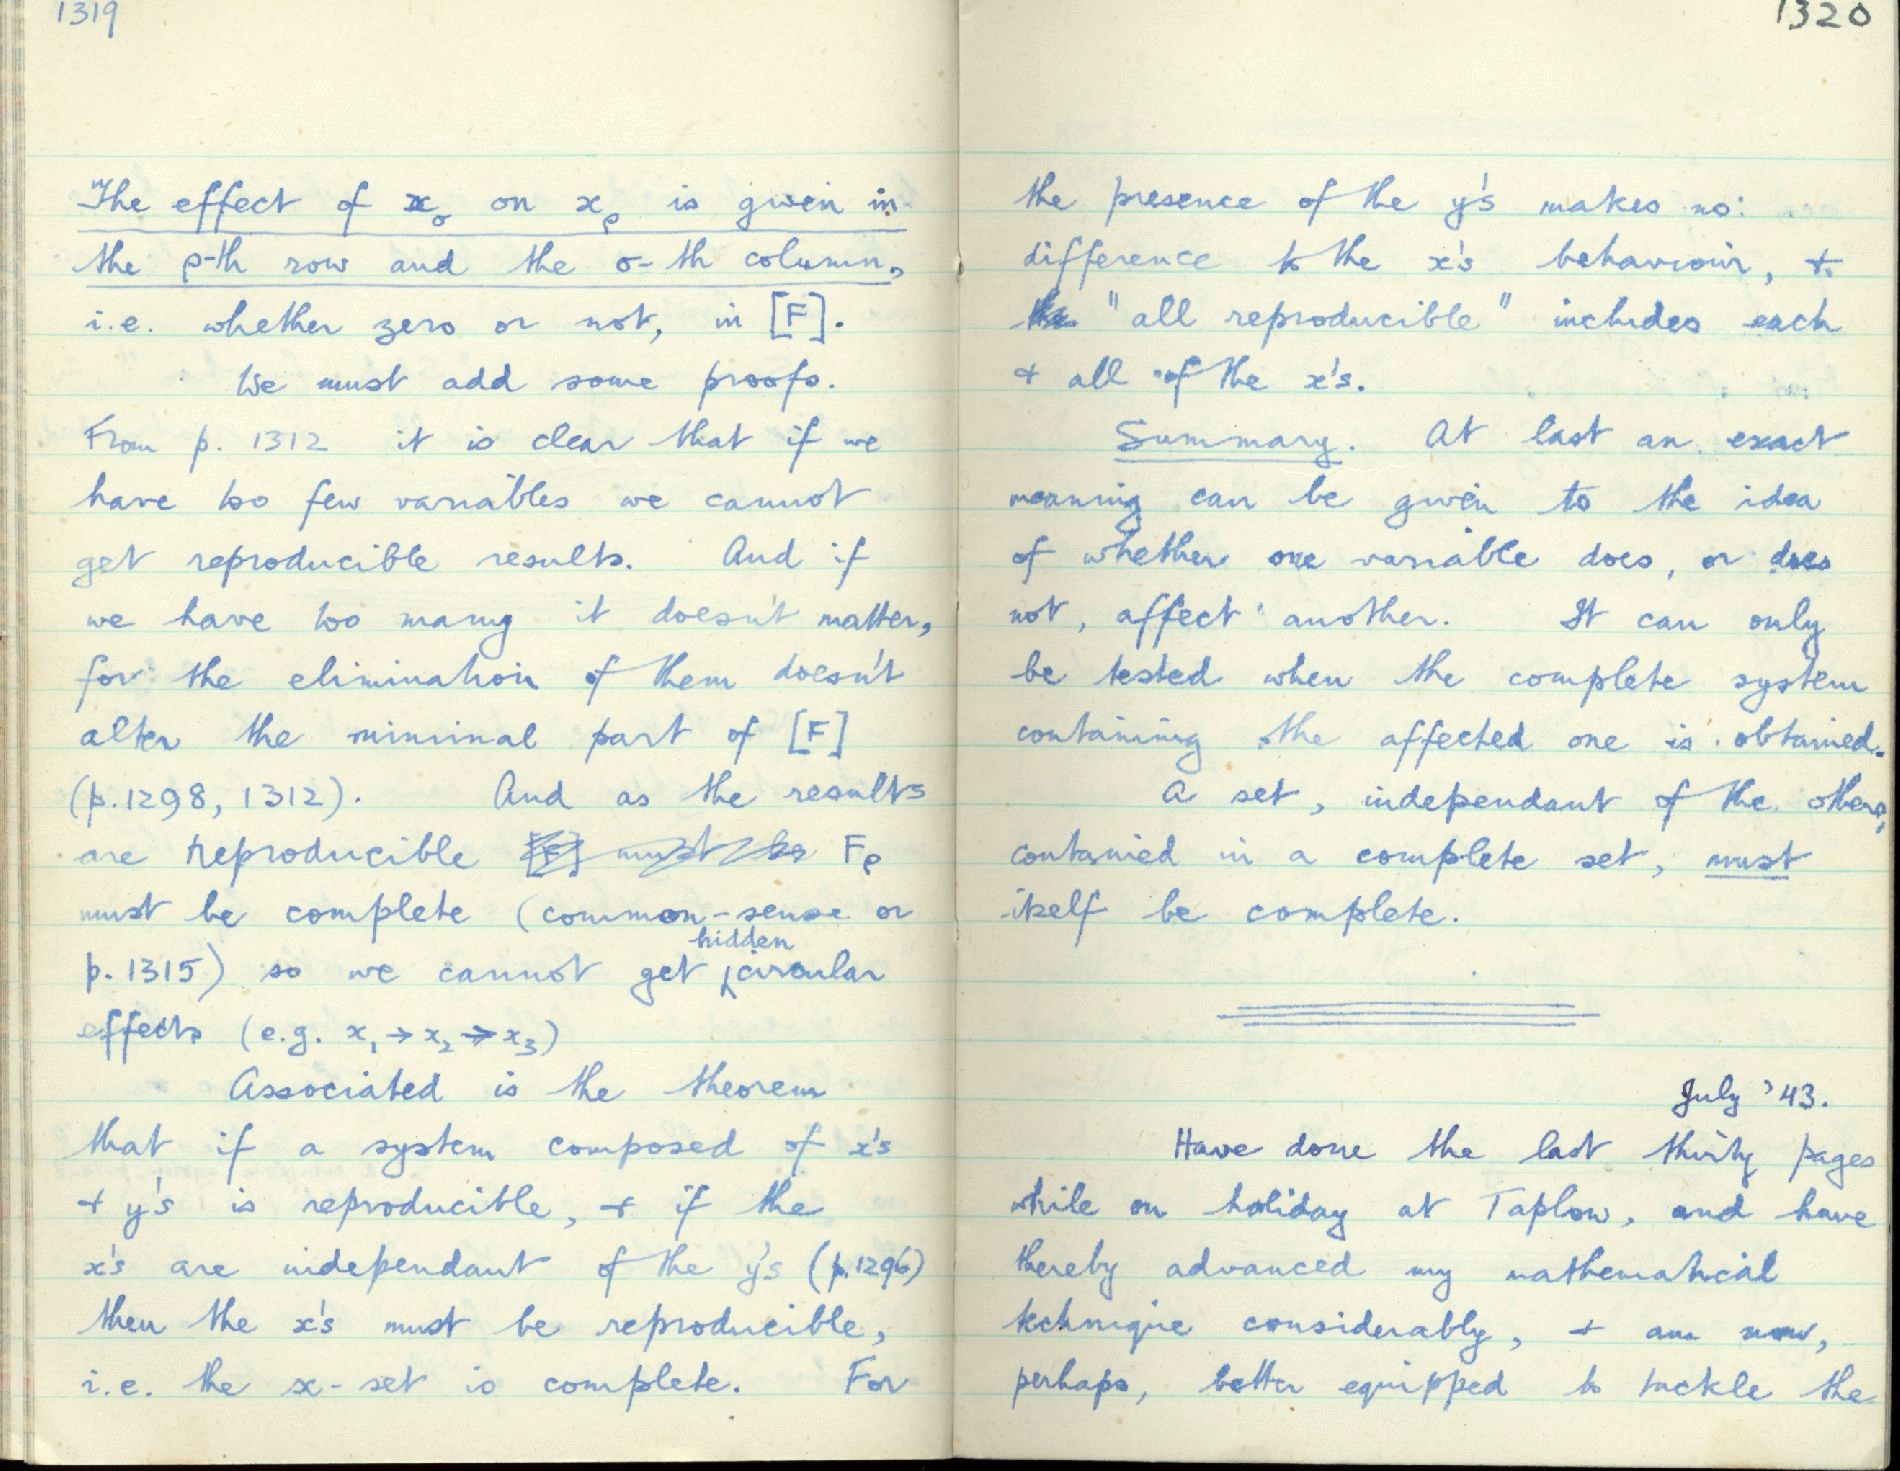 1319
The effect of xσ on xρ is given in
the ρ-th row and the σ-th column,
i.e. whether zero or not, in [F].
We must add some proofs.
From p. 1312 it is clear that if we
have too few variables we cannot
get reproducible results. And if
we have too many it doesn't matter,
for the elimination of them doesn't
alter the minimal part of [F]
(p.1298, 1312). And as the results
are reproducible [F] must be Fρ
must be complete (common-sense or
hidden
p. 1315) so we cannot get circular
effects (e.g. x₁→x₂→x₃)
Associated is the theorem
that if a system composed of x's
+ y's is reproducible, + if the
x's are independant of the y's (p.1296)
then the x's must be reproducible,
i.e. the x-set is complete. For
1320
the presence of the y's makes no
difference to the x's behaviour, +
the "all reproducible" includes each
+ all of the x's.
Summary. At last an exact
meaning can be given to the idea
of whether one variable does, or does
not, affect another. It can only
be tested when the complete system
containing the affected one is obtained.
A set, independant of the others,
contained in a complete set, must
itself be complete.
July '43.
Have done the last thirty pages
while on holiday at Taplow, and have
thereby advanced my mathematical
technique considerably, + am now,
perhaps, better equipped to tackle the